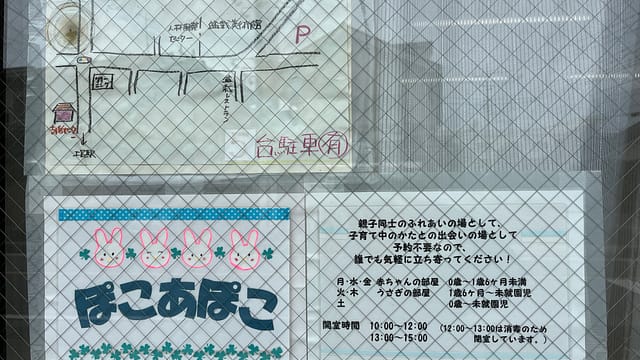 P
盆栽レストラン
駐車有
ぽこあぽこ
親子同士のふれあいの場として、
子育て中のかたとの出会いの場として
予約不要なので、
誰でも気軽に立ち寄ってください！
月・水・金 赤ちゃんの部屋 0歳〜1歳6ヶ月未満
火・木 うさぎの部屋 1歳6ヶ月〜未就園児
土 0歳〜未就園児
開室時間 10:00〜12:00 （12:00〜13:00は消毒のため
13:00〜15:00 閉室しています。）